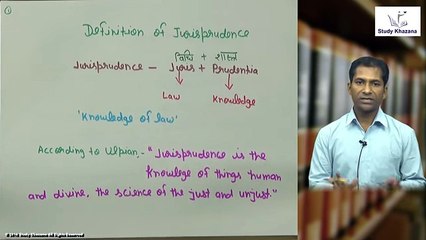 1
Definition of Jurisprudence
विधि + शास्त्र
Jurisprudence - Juris + Prudentia
Law Knowledge
'Knowledge of law'
According to Ulpian,- "Jurisprudence is the
knowlege of things human
and divine, the science of the just and unjust"
Study Khazana
Study Khazana All Rights Reserved